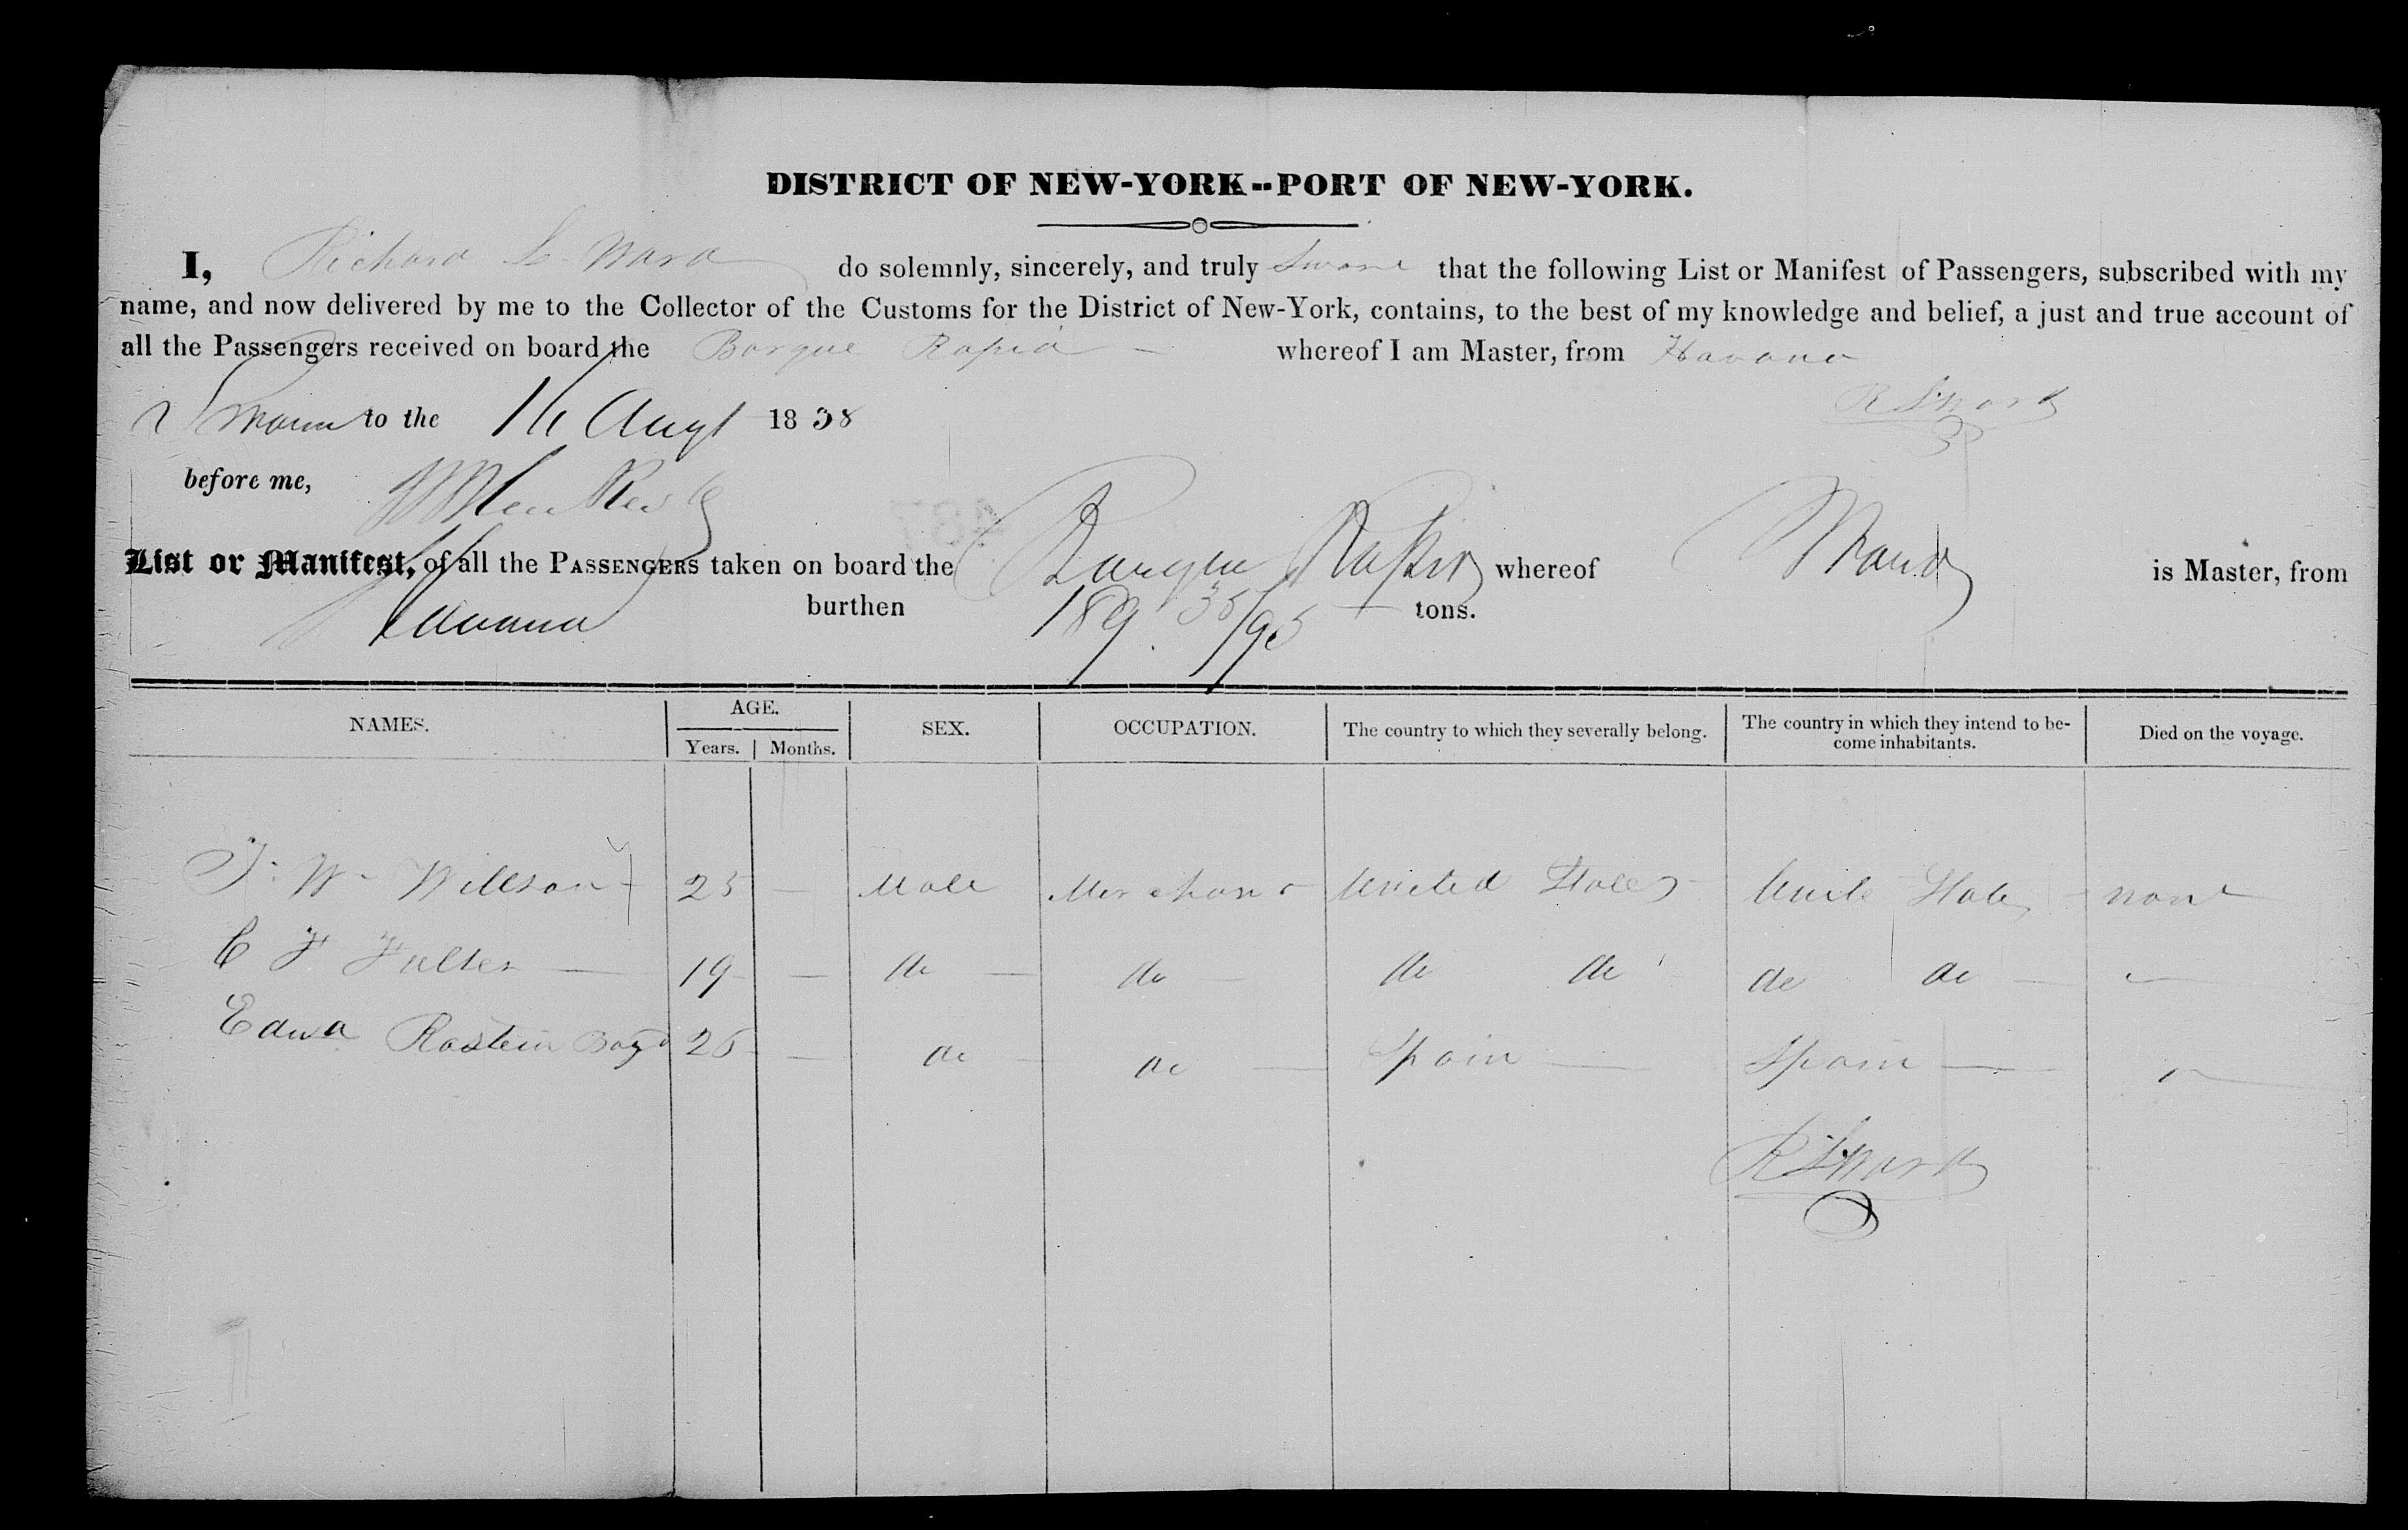 DISTRICT OF NEW-YORK--PORT OF NEW-YORK.
I, Richard L. Ward do solemnly, sincerely, and truly Swore that the following List or Manifest of Passengers, subscribed with my
name, and now delivered by me to the Collector of the Customs for the District of New-York, contains, to the best of my knowledge and belief, a just and true account of
all the Passengers received on board the Barque Rapid — whereof I am Master, from Havana
R L Ward
Sworn to the 16 Augt 1838
before me,
List or Manifest, of all the PASSENGERS taken on board the Barque Rapid whereof Ward is Master, from
Havana burthen 189 35/95 tons.
NAMES. AGE. SEX. OCCUPATION. The country to which they severally belong. The country in which they intend to be-
come inhabitants. Died on the voyage.
Years. Months.
J. W. Willson 25 — Male Merchant United States United States none
C F Fulter — 19 — do — do — do do do do —
Edwd Rostein 26 — do do — Spain — Spain —
R L Ward